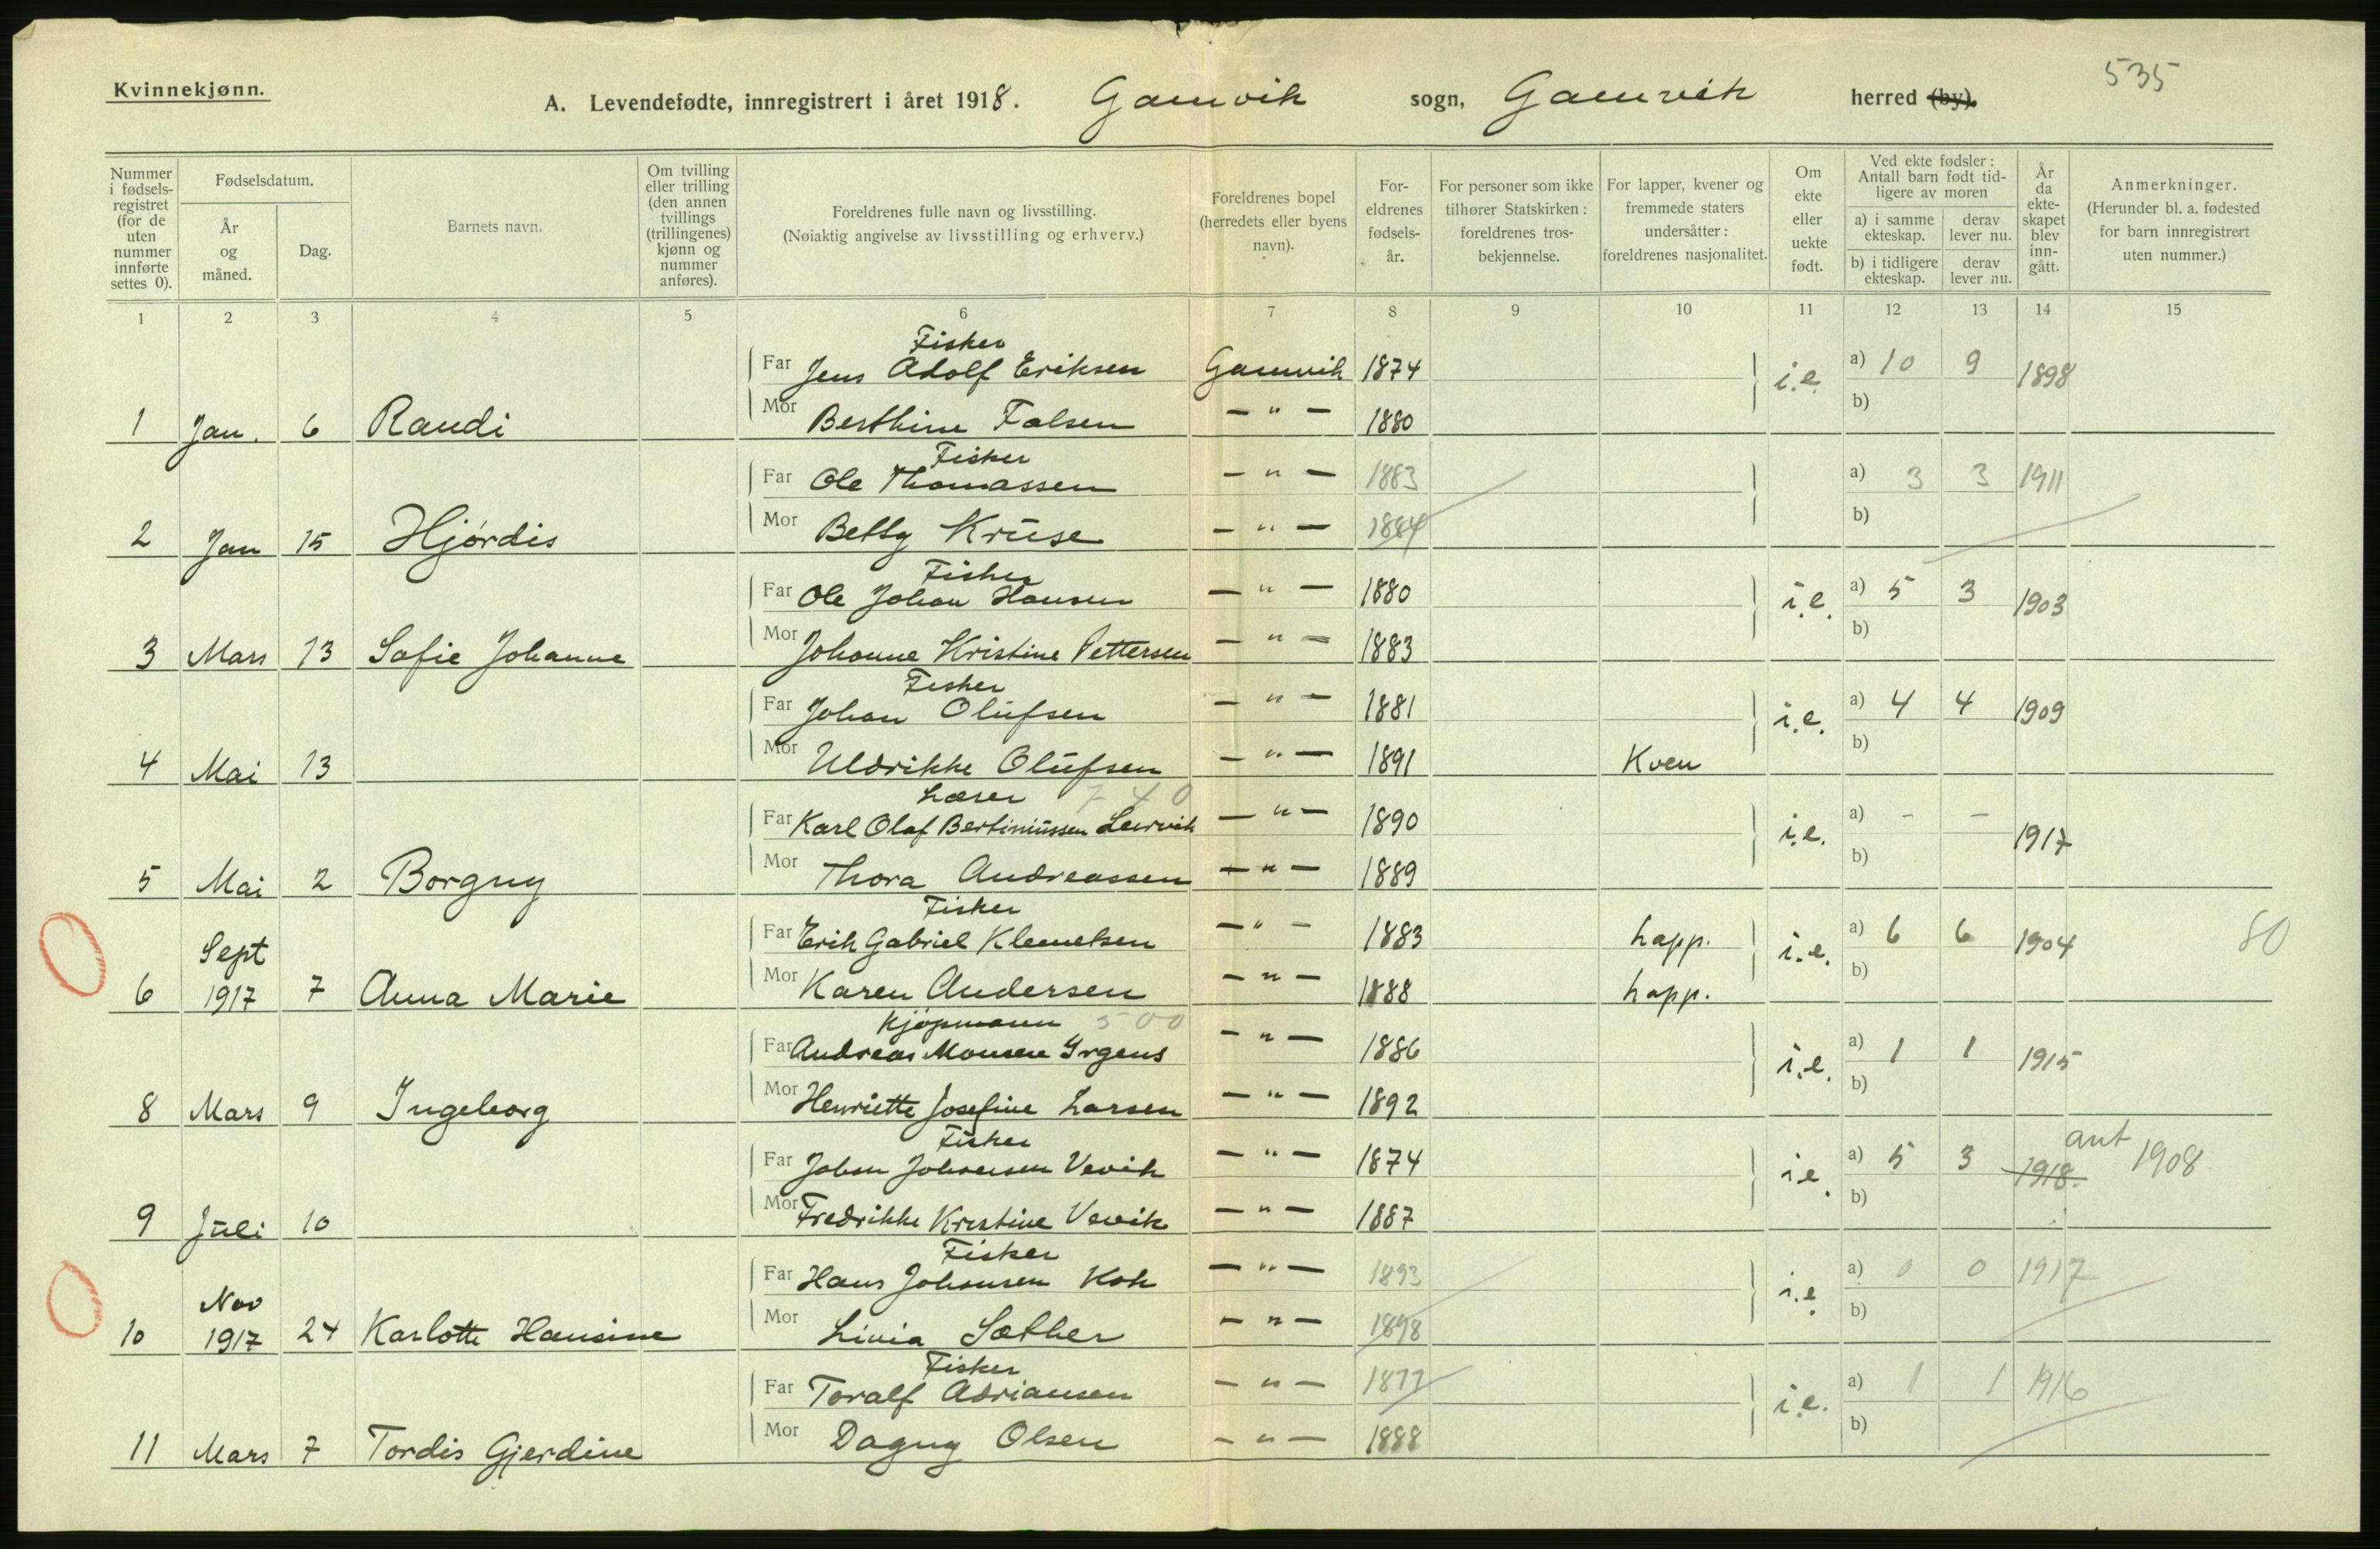 Kvinnekjønn.
535
A. Levendefødte, innregistrert i året 1918. Gamvik sogn, Gamvik herred (by).
Nummer i fødsels-registret (for de uten nummer innførte settes 0).
Fødselsdatum.
År og måned.
Dag.
Barnets navn.
Om tvilling eller trilling (den annen tvillings (trillingenes) kjønn og nummer anføres).
Foreldrenes fulle navn og livsstilling. (Nøiaktig angivelse av livsstilling og erhverv.)
Foreldrenes bopel (herredets eller byens navn).
For-eldrenes fødsels-år.
For personer som ikke tilhører Statskirken: foreldrenes tros-bekjennelse.
For lapper, kvener og fremmede staters undersåtter: foreldrenes nasjonalitet.
Om ekte eller uekte født.
Ved ekte fødsler: Antall barn født tid-ligere av moren
a) i samme ekteskap. derav lever nu.
b) i tidligere ekteskap. derav lever nu.
År da ekte-skapet blev inn-gått.
Anmerkninger. (Herunder bl. a. fødested for barn innregistrert uten nummer.)
1 2 3 4 5 6 7 8 9 10 11 12 13 14 15
Fisker
Far Jens Adolf Eriksen Gamvik 1874 i.e. a) 10 9 1898
b)
1 Jan. 6 Randi Mor Berthine Falsen — " — 1880
Fisker
Far Ole Thomassen — " — 1883 a) 3 3 1911
b)
2 Jan 15 Hjørdis Mor Betsy Kruse — " — 1884
Fisker
Far Ole Johan Hansen — " — 1880 i.e. a) 5 3 1903
b)
3 Mars 13 Sofie Johanne Mor Johanne Kristine Pettersen — " — 1883
Fisker
Far Johan Olufsen — " — 1881 i.e. a) 4 4 1909
b)
4 Mai 13 Mor Uldrikke Olufsen — " — 1891 Kven
Lærer 740
Far Karl Olaf Bertiniussen Leirvik — " — 1890 i.e. a) - - 1917
b)
5 Mai 2 Borgny Mor Thora Andreassen — " — 1889
Fisker
Far Erik Gabriel Klemetsen — " — 1883 Lapp. i.e. a) 6 6 1904 80
b)
6 Sept 1917 7 Anna Marie Mor Karen Andersen — " — 1888 Lapp.
Kjøpmann 500
Far Andreas Monsen Irgens — " — 1886 i.e. a) 1 1 1915
b)
8 Mars 9 Ingeborg Mor Henriette Josefine Larsen — " — 1892
Fisker
Far Johan Johansen Vevik — " — 1874 i.e. a) 5 3 1918. ant 1908
b)
9 Juli 10 Mor Fredrikke Kristine Vevik — " — 1887
Fisker
Far Hans Johansen Kok — " — 1893 i.e. a) 0 0 1917
b)
10 Nov 1917 24 Karlotte Hansine Mor Livia Sæther — " — 1898
Fisker
Far Toralf Adriansen — " — 1877 i.e. a) 1 1 1916
b)
11 Mars 7 Tordis Gjerdine Mor Dagny Olsen — " — 1888